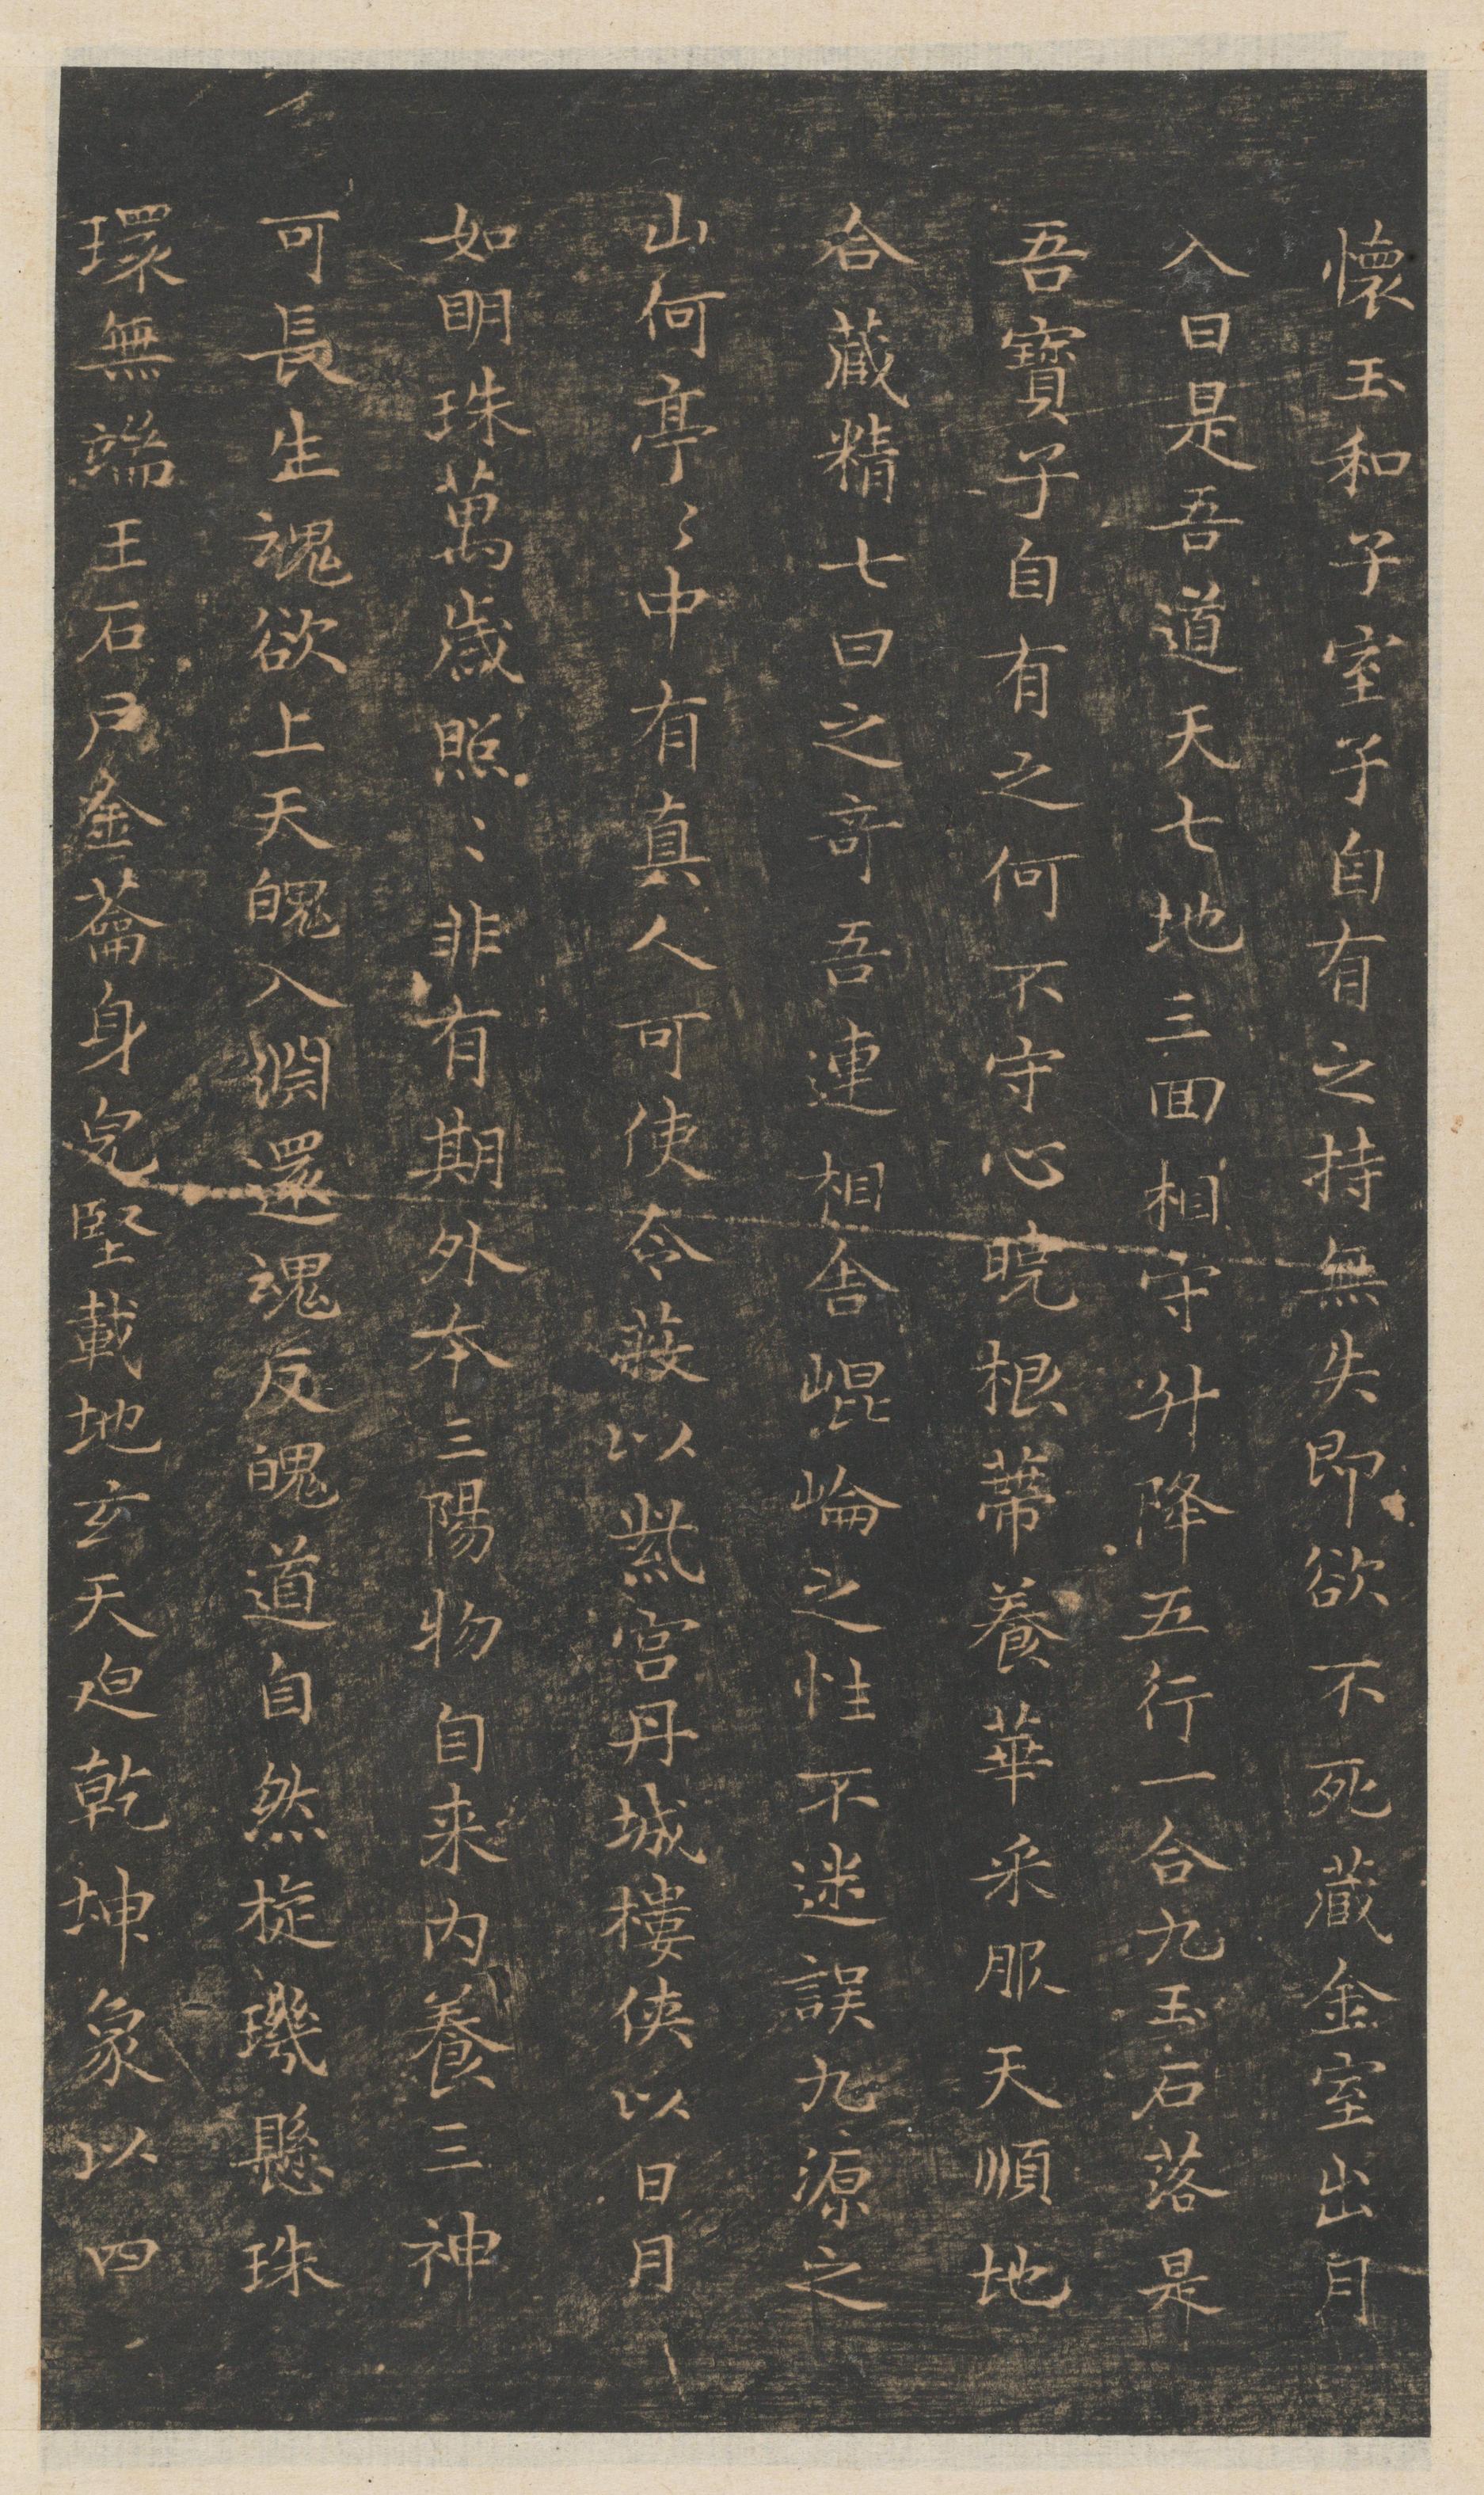 懷玉和子室子自有之持無失即欲不死藏金室出月
入日是吾道天七地三回相守升降五行一合九玉石落是
吾寶子自有之何不守心曉根蒂養華采服天順地
合藏精七日之奇吾連相舍崐崘之性不迷誤九源之
山何亭〻中有真人可使令蔽以紫宮丹城樓俠以日月
如明珠萬歲照〻非有期外本三陽物自来內養三神
可長生魂欲上天魄入淵還魂反魄道自然旋璣懸珠
環無端玉石戶金籥身完堅載地玄天迫乾坤象以四